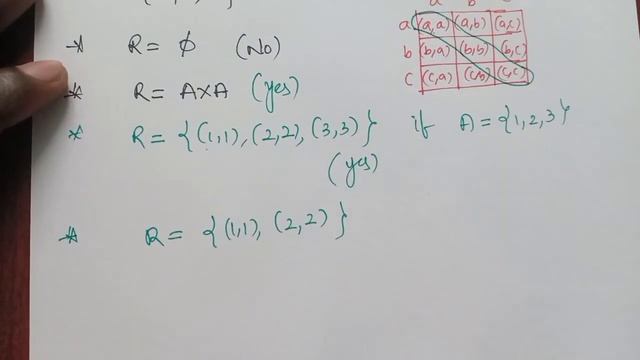 a (a,a) (a,b) (a,c)
b (b,a) (b,b) (b,c)
c (c,a) (c,b) (c,c)
* R = ϕ (No)
* R = A×A (yes)
* R = {(1,1), (2,2), (3,3)} if A = {1,2,3}
(yes)
* R = {(1,1), (2,2)}